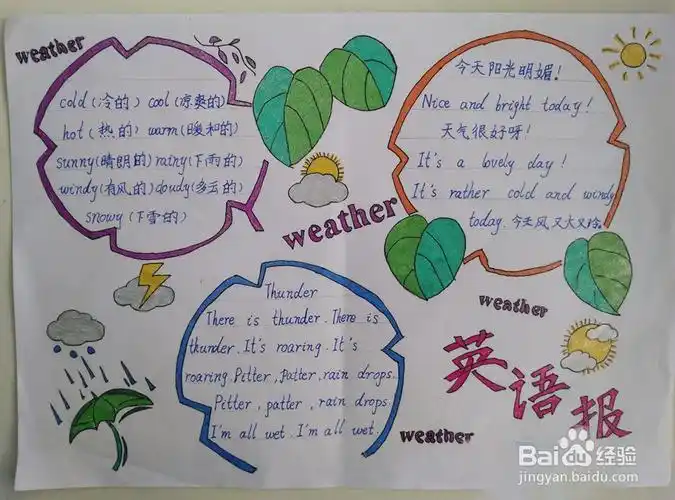 weather
cold(冷的) cool(凉爽的)
hot(热的) warm(暖和的)
sunny(晴朗的) rainy(下雨的)
windy(有风的) cloudy(多云的)
snowy(下雪的)
weather
今天阳光明媚!
Nice and bright today!
天气很好呀!
It's a lovely day!
It's rather cold and windy
today. 今天风又大又冷。
weather
Thunder
There is thunder. There is
thunder. It's roaring. It's
roaring. Pitter, Patter, rain drops.
Pitter, patter, rain drops
I'm all wet. I'm all wet.
weather
英语报
Baidu经验
jingyan.baidu.com